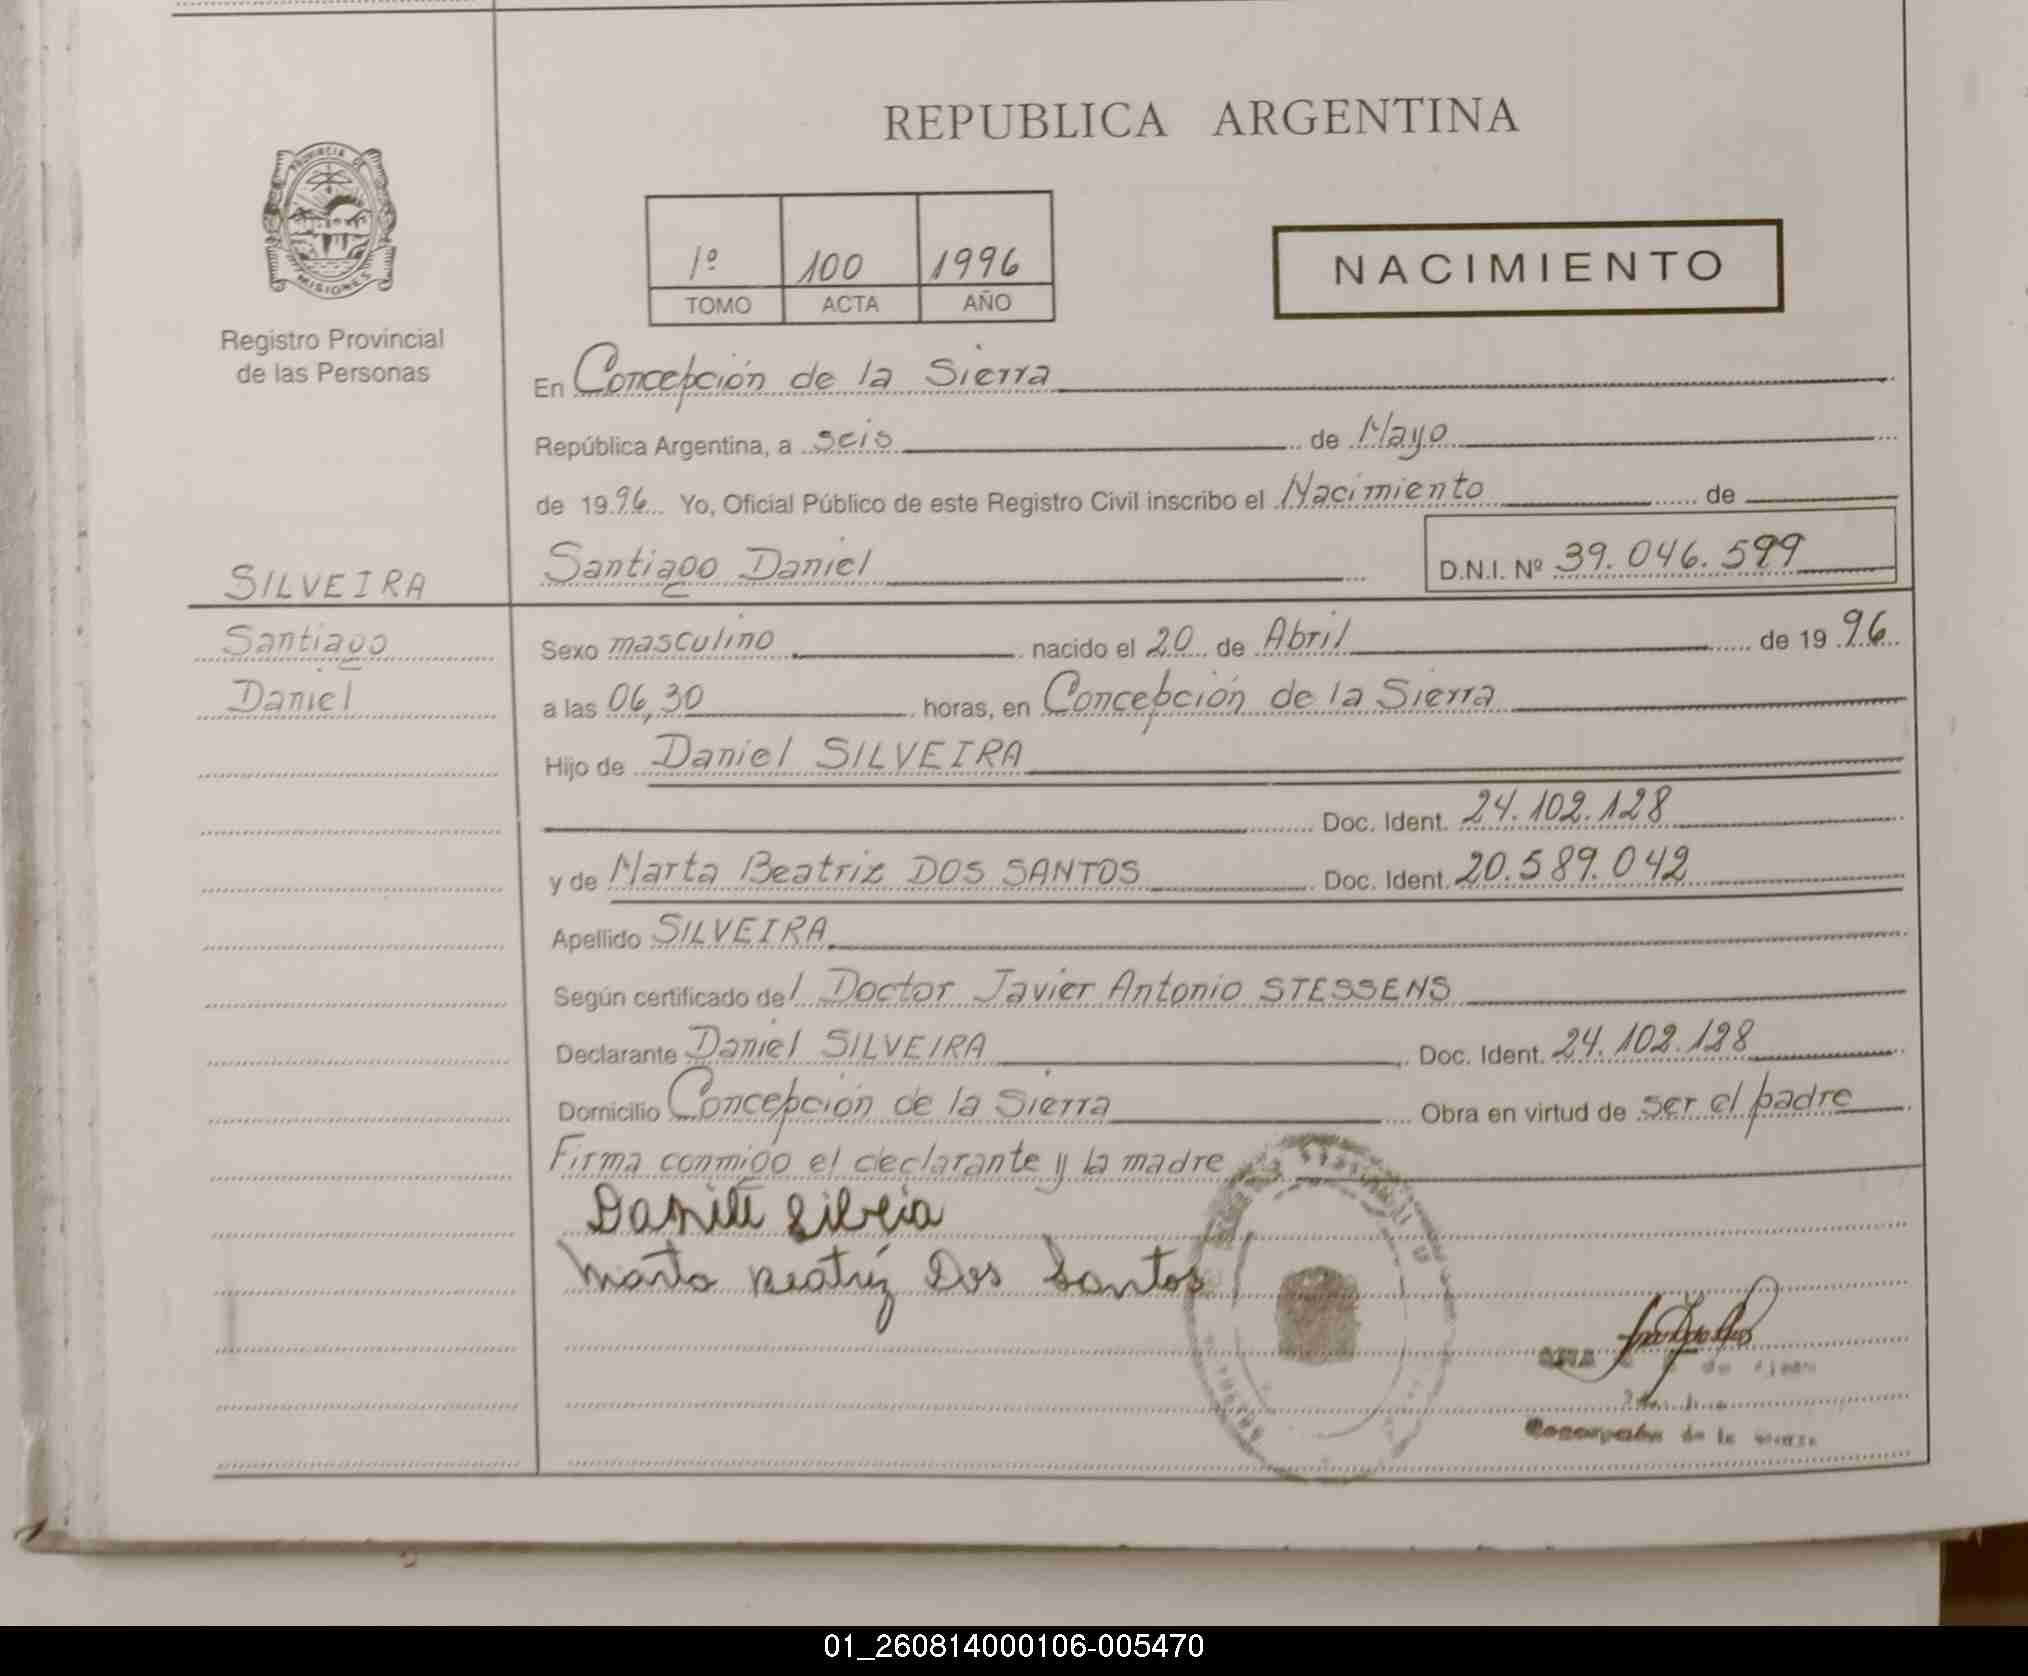 REPUBLICA ARGENTINA
PROVINCIA DE
MISIONES
1º 100 1996
TOMO ACTA AÑO
NACIMIENTO
Registro Provincial
de las Personas
En Concepción de la Sierra
República Argentina, a seis de Mayo
de 1996 Yo, Oficial Público de este Registro Civil inscribo el Nacimiento de
SILVEIRA Santiago Daniel D.N.I. Nº 39.046.599
Santiago Sexo masculino nacido el 20 de Abril de 1996
Daniel a las 06,30 horas, en Concepción de la Sierra
Hijo de Daniel SILVEIRA
Doc. Ident. 24.102.128
y de Marta Beatriz DOS SANTOS Doc. Ident. 20.589.042
Apellido SILVEIRA
Según certificado del Doctor Javier Antonio STESSENS
Declarante Daniel SILVEIRA Doc. Ident. 24.102.128
Domicilio Concepción de la Sierra Obra en virtud de ser el padre
Firma conmigo el declarante y la madre
Marta Beatriz Dos Santos
de la
01_260814000106-005470